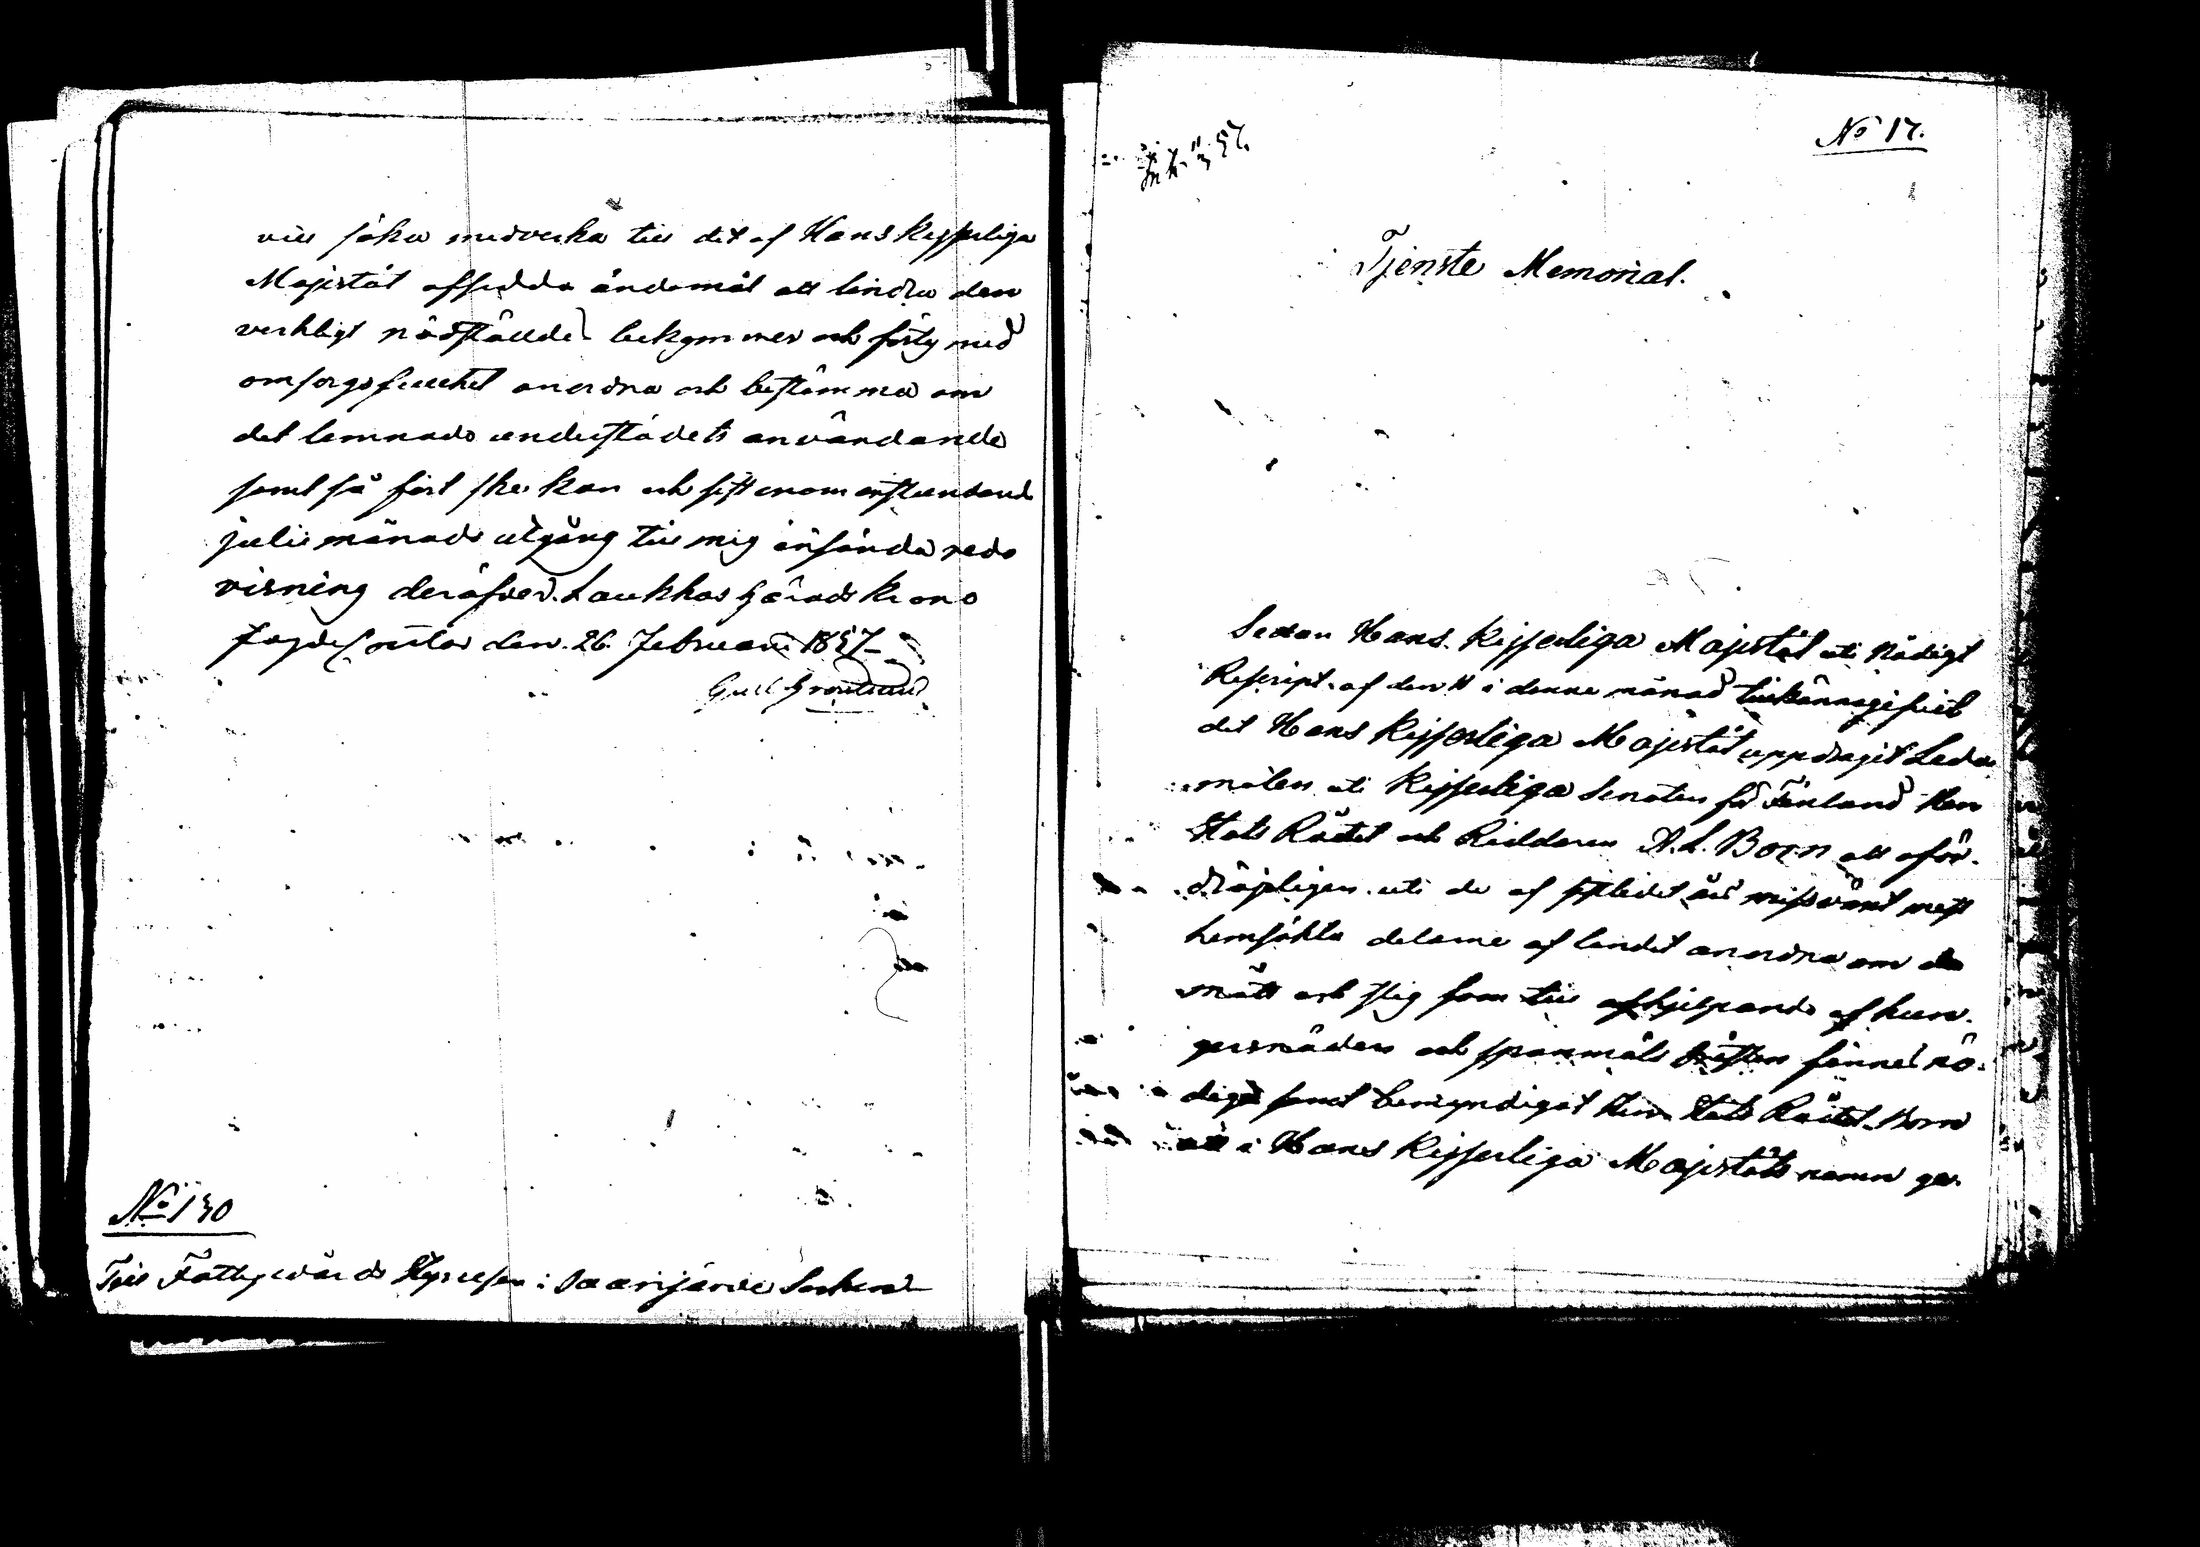 vill söka medverka till det af Hans Kejserliga
Majestät afsedda ändamål att lindra den
verkligt nödstäldes bekymmer och förty med
omsorgsfullhet anordna och bestämma om
det lemnade understödets användande
samt så fort ske kan och sist inom instundande
julii månads utgång till mig insända redo
visning deröfver. Laukkas Härads Krono
Fogdecontor den 26 Februari 1857
Gust
No 130
Till Fattigvårds Styrelsen i Saarijärvi Socken
No 17.
57.
Tjenste Memorial.
Sedan Hans Kejserliga Majestät uti Nådigt
Rescript af den 11 i denne månad tillkännagifvit
det Hans Kejserliga Majestät uppdragit Leda
moten uti Kejserliga Senaten för Finland Herr
Stats Rådet och Riddaren A. L. Born att oför-
dröjeligen uti de af sistlidet års missväxt mest
hemsökta delarne af landet anordna om de
mått och steg som till afhjelpande af hun-
gersnöden och spanmåls bristen finnes nö-
diga samt bemyndigat Herr Stats Rådet Born
att i Hans Kejserliga Majestäts namn ge-